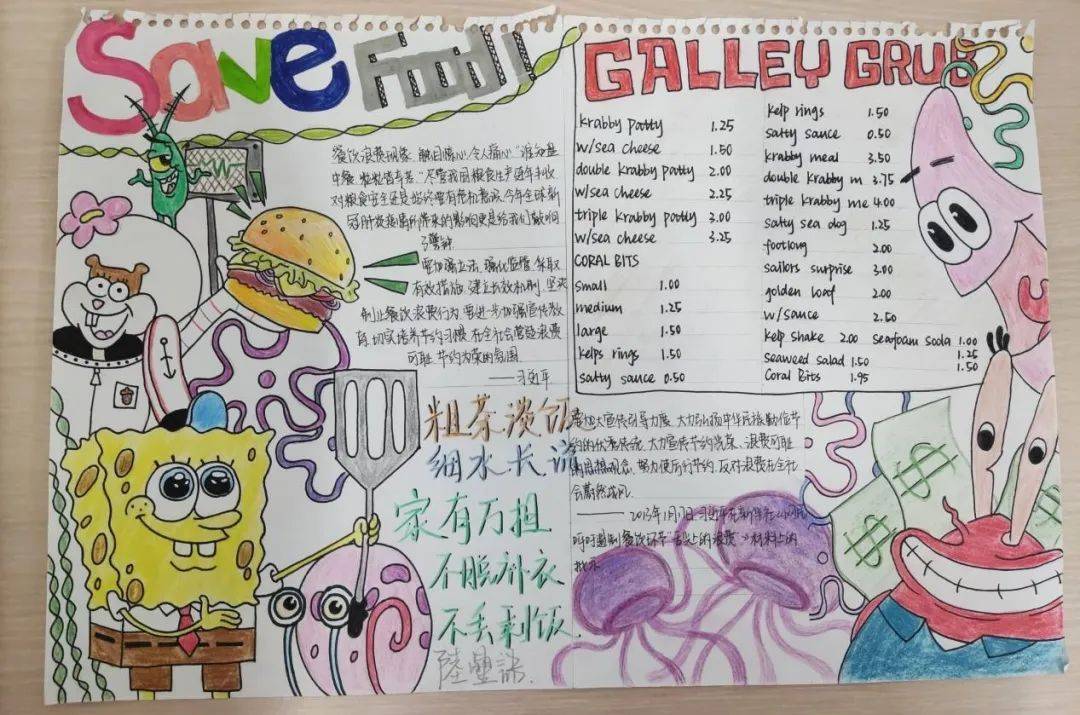 Save Food!!
餐饮浪费现象,触目惊心,令人痛心"谁知盘
中餐,粒粒皆辛苦."尽管我国粮食生产连年丰收
对粮食安全还是始终要有危机意识,今年全球新
冠肺炎疫情所带来的影响更是给我们敲响
了警钟
要加强立法,强化监管,采取
有效措施,建立长效机制,坚决
制止餐饮浪费行为,要进一步加强宣传教
育,切实培养节约习惯,在全社会营造浪费
可耻 节约为荣的氛围.
——习近平
粗茶淡饭
细水长流
家有万担
不脱补衣
不丢剩饭.
GALLEY GRUB
krabby patty 1.25
w/sea cheese 1.50
double krabby patty 2.00
w/sea cheese 2.25
triple krabby patty 3.00
w/sea cheese 3.25
CORAL BITS
small 1.00
medium 1.25
large 1.50
kelps rings 1.50
salty sauce 0.50
kelp rings 1.50
salty sauce 0.50
krabby meal 3.50
double krabby m 3.75
triple krabby me 4.00
salty sea dog 1.25
footlong 2.00
sailors surprise 3.00
golden loaf 2.00
w/sauce 2.50
kelp shake 2.00 seafoam sooda 1.00
1.25
seaweed salad 1.50 1.50
Coral Bits 1.95
要加大宣传引导力度,大力弘扬中华民族勤俭节
约的优秀传统,大力宣传节约光荣、浪费可耻
的思想观念,努力使厉行节约、反对浪费在全社
会蔚然成风.
——2013年1月17日,习近平在新华社